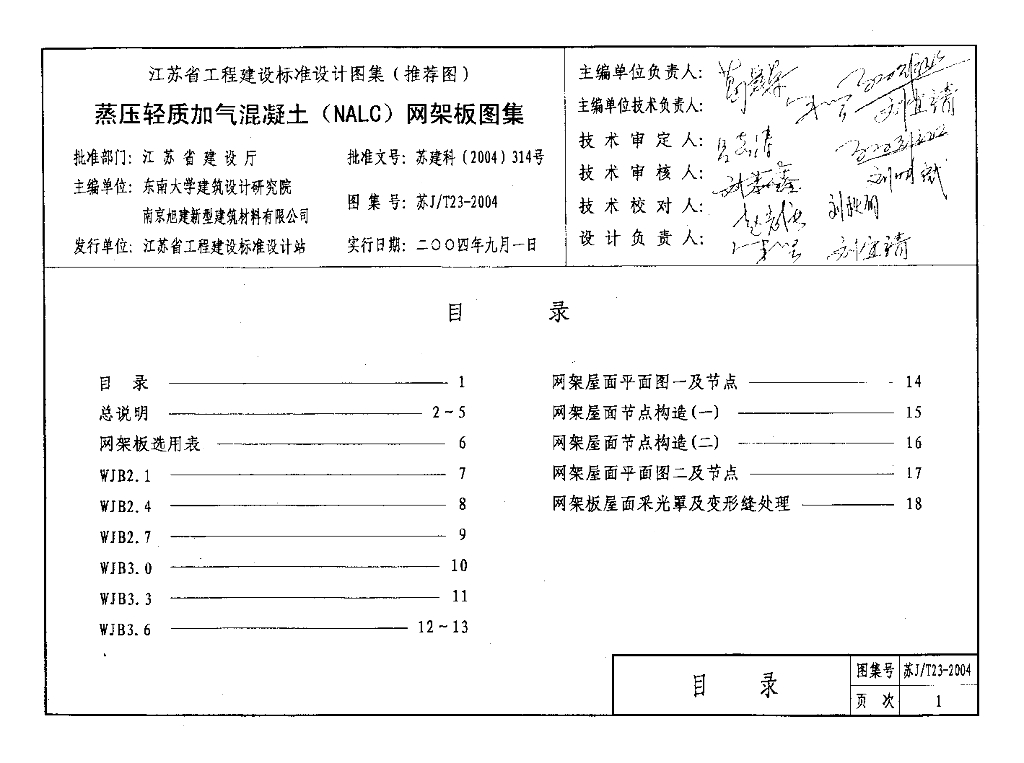 江苏省工程建设标准设计图集(推荐图)
蒸压轻质加气混凝土(NALC)网架板图集
批准部门: 江苏省建设厅
批准文号: 苏建科(2004)314号
主编单位: 东南大学建筑设计研究院
南京旭建新型建筑材料有限公司
图集号: 苏J/T23-2004
发行单位: 江苏省工程建设标准设计站
实行日期: 二〇〇四年九月一日
主编单位负责人:
主编单位技术负责人: 刘宜靖
技术审定人:
技术审核人:
技术校对人:
设计负责人: 刘宜靖
目 录
目 录 1
总说明 2~5
网架板选用表 6
WJB2.1 7
WJB2.4 8
WJB2.7 9
WJB3.0 10
WJB3.3 11
WJB3.6 12~13
网架屋面平面图一及节点 14
网架屋面节点构造(一) 15
网架屋面节点构造(二) 16
网架屋面平面图二及节点 17
网架板屋面采光罩及变形缝处理 18
目 录
图集号 苏J/T23-2004
页次 1